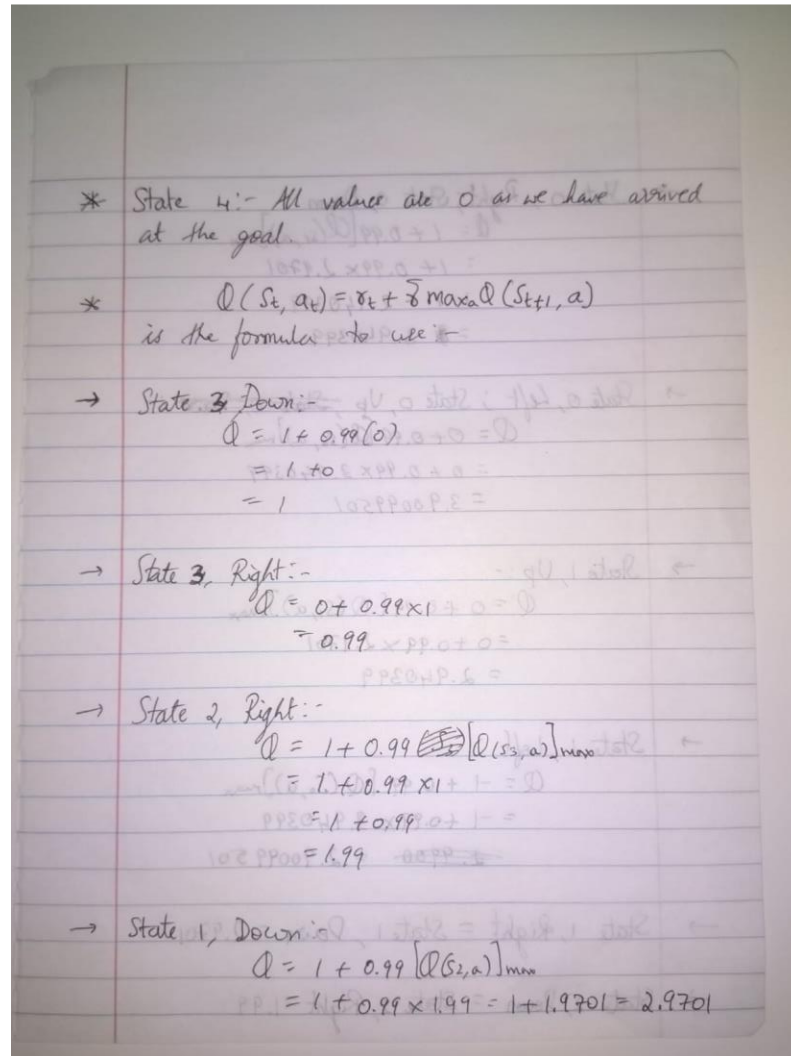 * State 4:- All values are 0 as we have arrived
at the goal.
* Q(St, at) = rt + γ maxa Q(St+1, a)
is the formula to use :-
→ State 3, Down:-
Q = 1 + 0.99(0)
= 1 + 0
= 1
→ State 3, Right:-
Q = 0 + 0.99×1
= 0.99
→ State 2, Right:-
Q = 1 + 0.99 [Q(s3,a)]max
= 1 + 0.99 ×1
= 1 + 0.99
= 1.99
→ State 1, Down:-
Q = 1 + 0.99 [Q(s2,a)]max
= 1 + 0.99 × 1.99 = 1 + 1.9701 = 2.9701